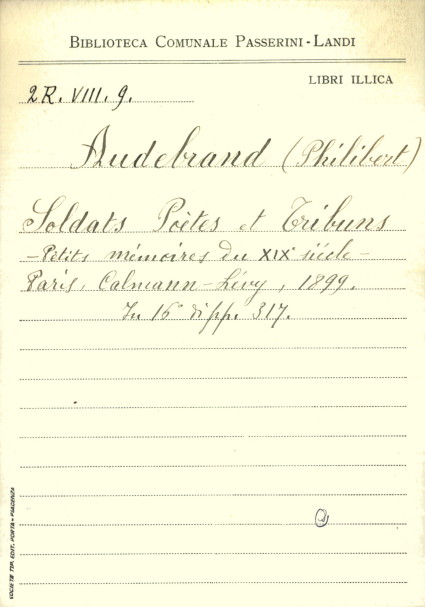 BIBLIOTECA COMUNALE PASSERINI-LANDI
LIBRI ILLICA
2R. VIII. 9.
Audebrand (Philibert)
Soldats Poètes et Tribuns
- Petits mémoires du XIXe siécle -
Paris, Calmann-Lévy, 1899.
In 16° di pp. 317.
SOCIETÀ TIP. EDIT. PORTA - PIACENZA